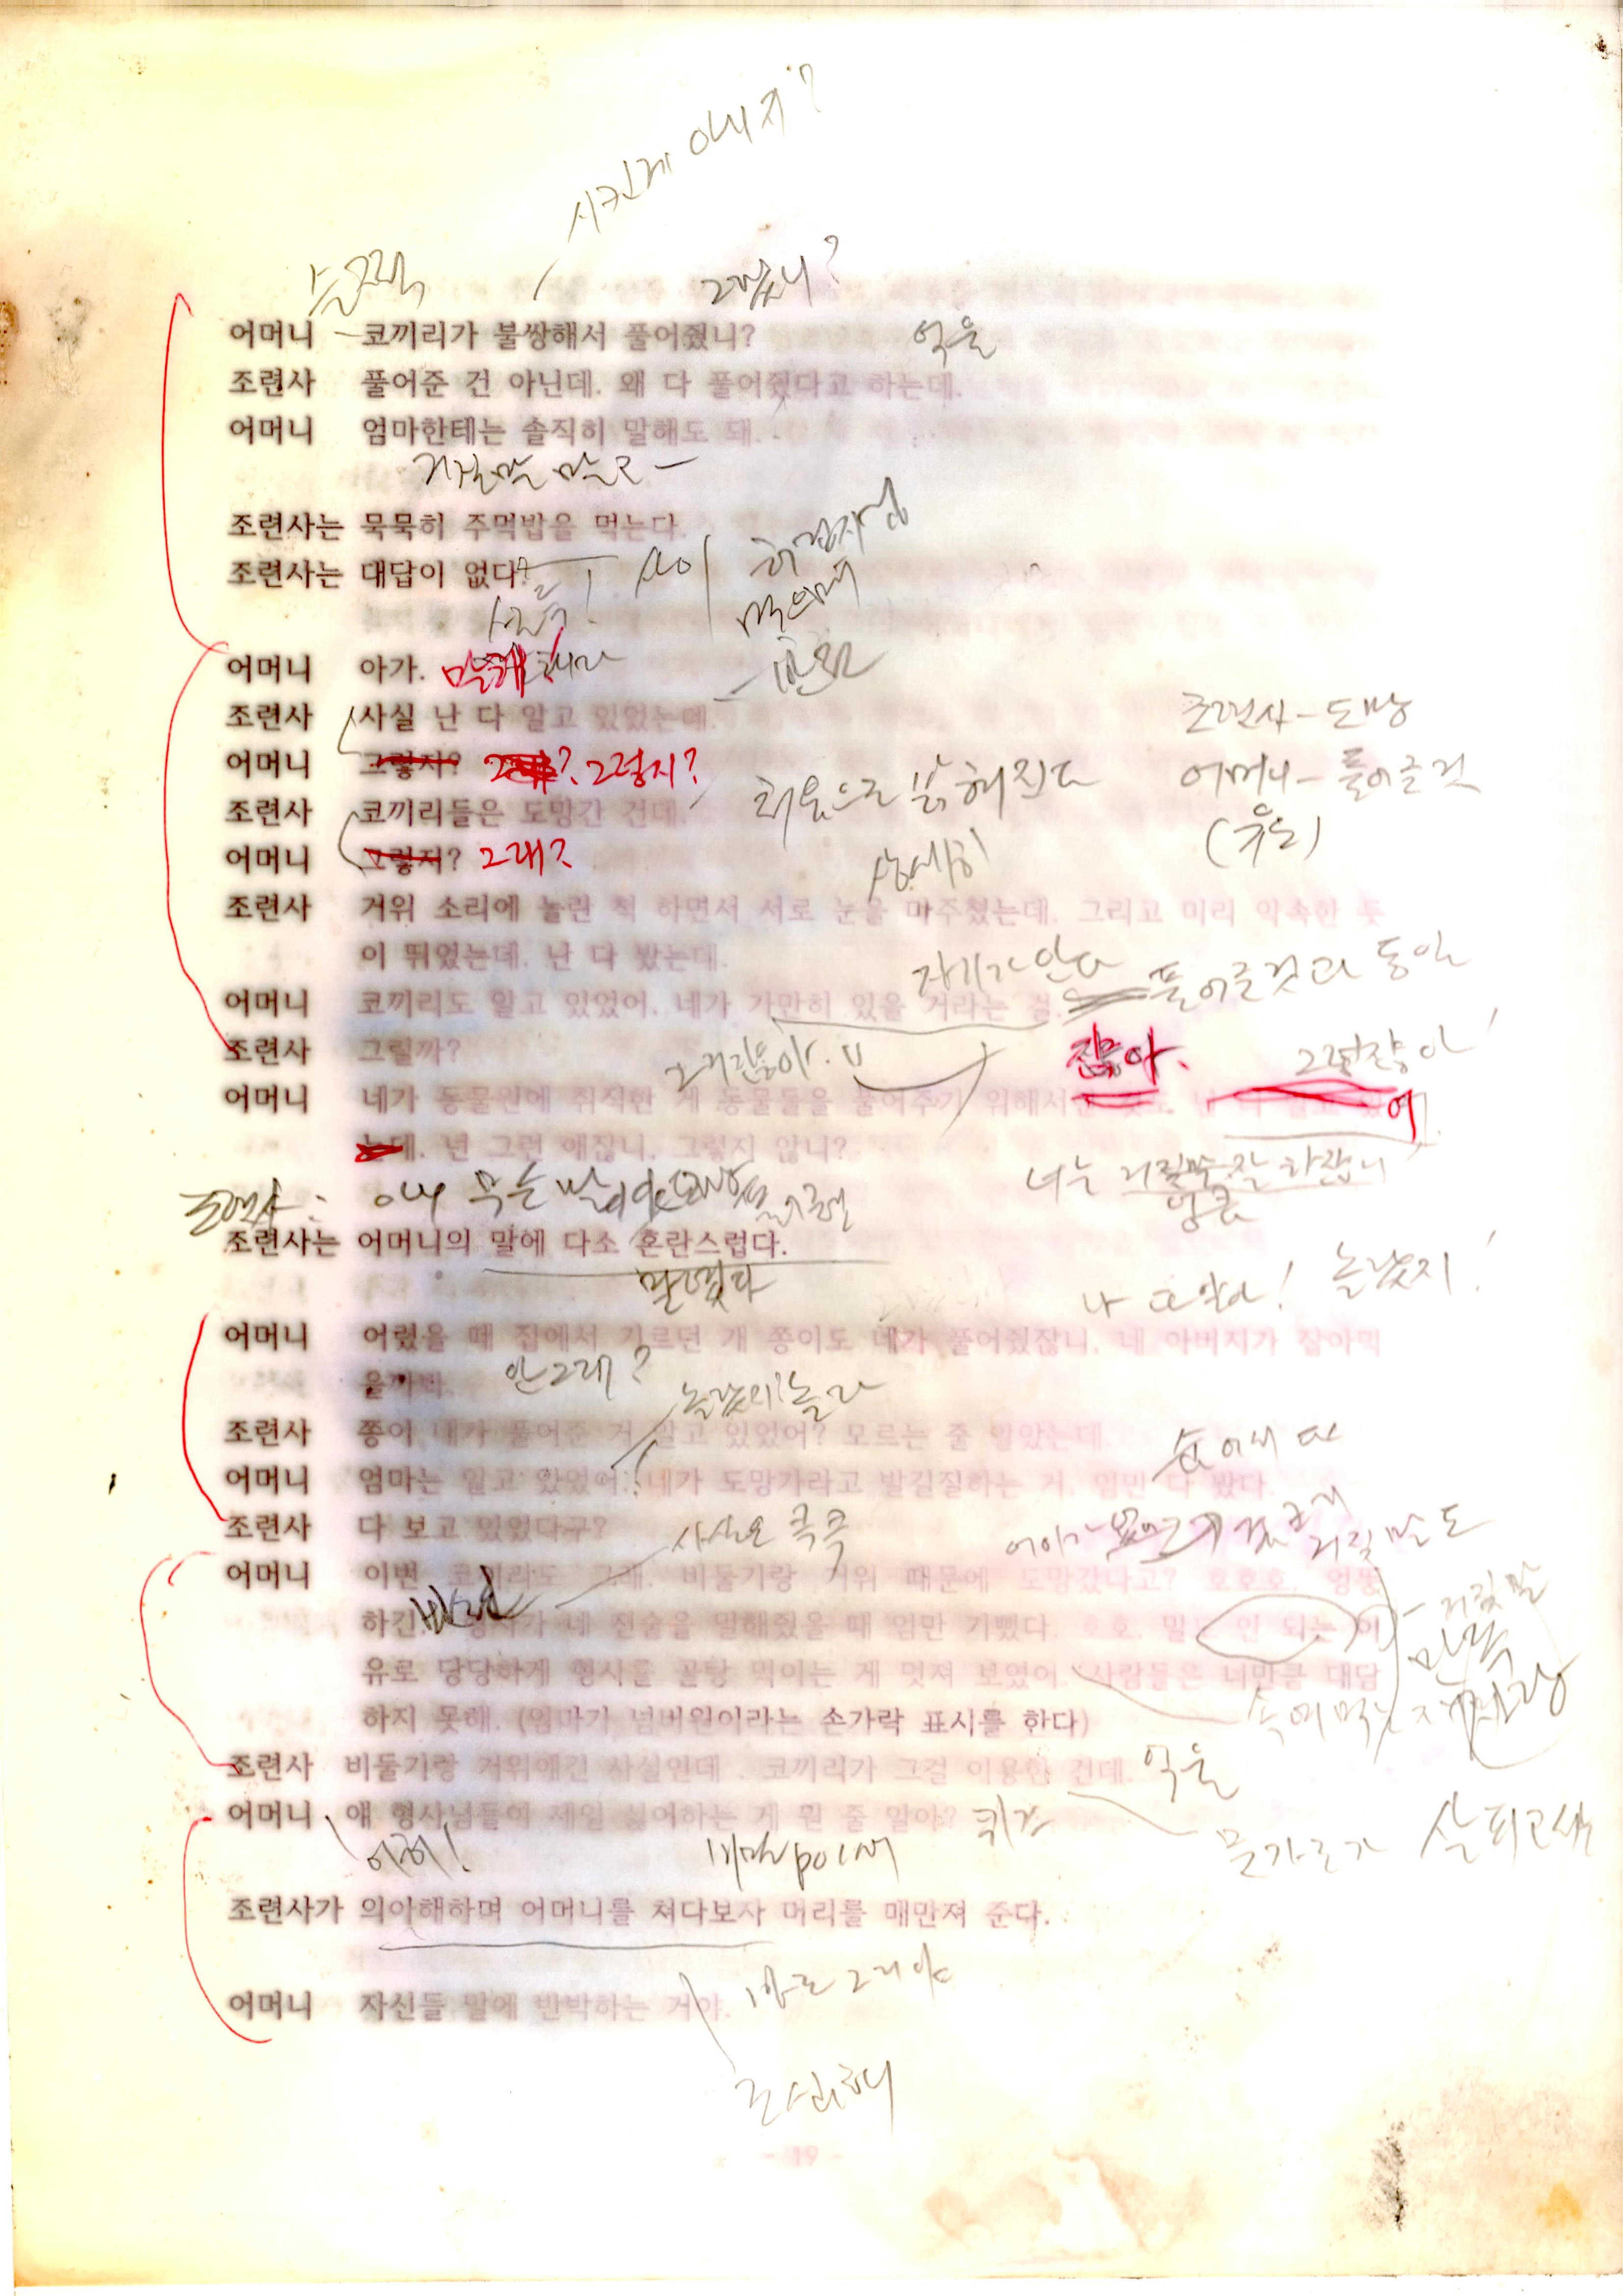 시킨게 아니지?
솔직
그랬니?
어머니 코끼리가 불쌍해서 풀어줬니?
억울
조련사 풀어준 건 아닌데. 왜 다 풀어줬다고 하는데.
어머니 엄마한테는 솔직히 말해도 돼.
거짓말 말고
조련사는 묵묵히 주먹밥을 먹는다.
조련사는 대답이 없다.
사이
먹으며
어머니 아가. 말해!
조련사 사실 난 다 알고 있었는데.
조련사 - 도망
어머니 그렇지? 그렇지?
어머니 - 풀어준 것
처음으로 밝혀진다
(유도)
조련사 코끼리들은 도망간 건데.
어머니 그렇지? 그래?
상세히
조련사 거위 소리에 놀란 척 하면서 서로 눈을 마주쳤는데. 그리고 미리 약속한 듯
이 뛰었는데. 난 다 봤는데.
자기가 안다
풀어준것과 동일
어머니 코끼리도 알고 있었어. 네가 가만히 있을 거라는 걸.
조련사 그럴까?
잖아.
그렇잖아!
어머니 네가 동물원에 취직한 게 동물들을 풀어주기 위해서란 것도 난 다 알고 있
는데. 넌 그런 애잖니. 그렇지 않니?
어
너는 거짓말 잘 하잖니
조련사 :
조련사는 어머니의 말에 다소 혼란스럽다.
나 다 안다! 놀랐지!
어머니 어렸을 때 집에서 기르던 개 쫑이도 네가 풀어줬잖니. 네 아버지가 잡아먹
을까봐.
안그래?
조련사 쫑이 내가 풀어준 거 알고 있었어? 모르는 줄 알았는데.
숨어서 다
어머니 엄마는 알고 있었어. 네가 도망가라고 발길질하는 거. 엄만 다 봤다.
조련사 다 보고 있었다구?
사실은 쿡쿡
거짓말도
어머니 이번 코끼리도 그래. 비둘기랑 거위 때문에 도망갔다고? 호호호. 엉뚱
하긴. 형사가 네 진술을 말해줬을 때 엄만 기뻤다. 호호. 말도 안 되는 이
거짓말
만족
유로 당당하게 형사를 골탕 먹이는 게 멋져 보였어. 사람들은 너만큼 대담
하지 못해. (엄마가 넘버원이라는 손가락 표시를 한다)
조련사 비둘기랑 거위얘긴 사실인데. 코끼리가 그걸 이용한 건데.
억울
어머니 얘 형사님들이 제일 싫어하는 게 뭔 줄 알아?
퀴즈
문가로가 살피고서
조련사가 의아해하며 어머니를 쳐다보자 머리를 매만져 준다.
바로 그거야
어머니 자신들 말에 반박하는 거야.
조심해
- 19 -